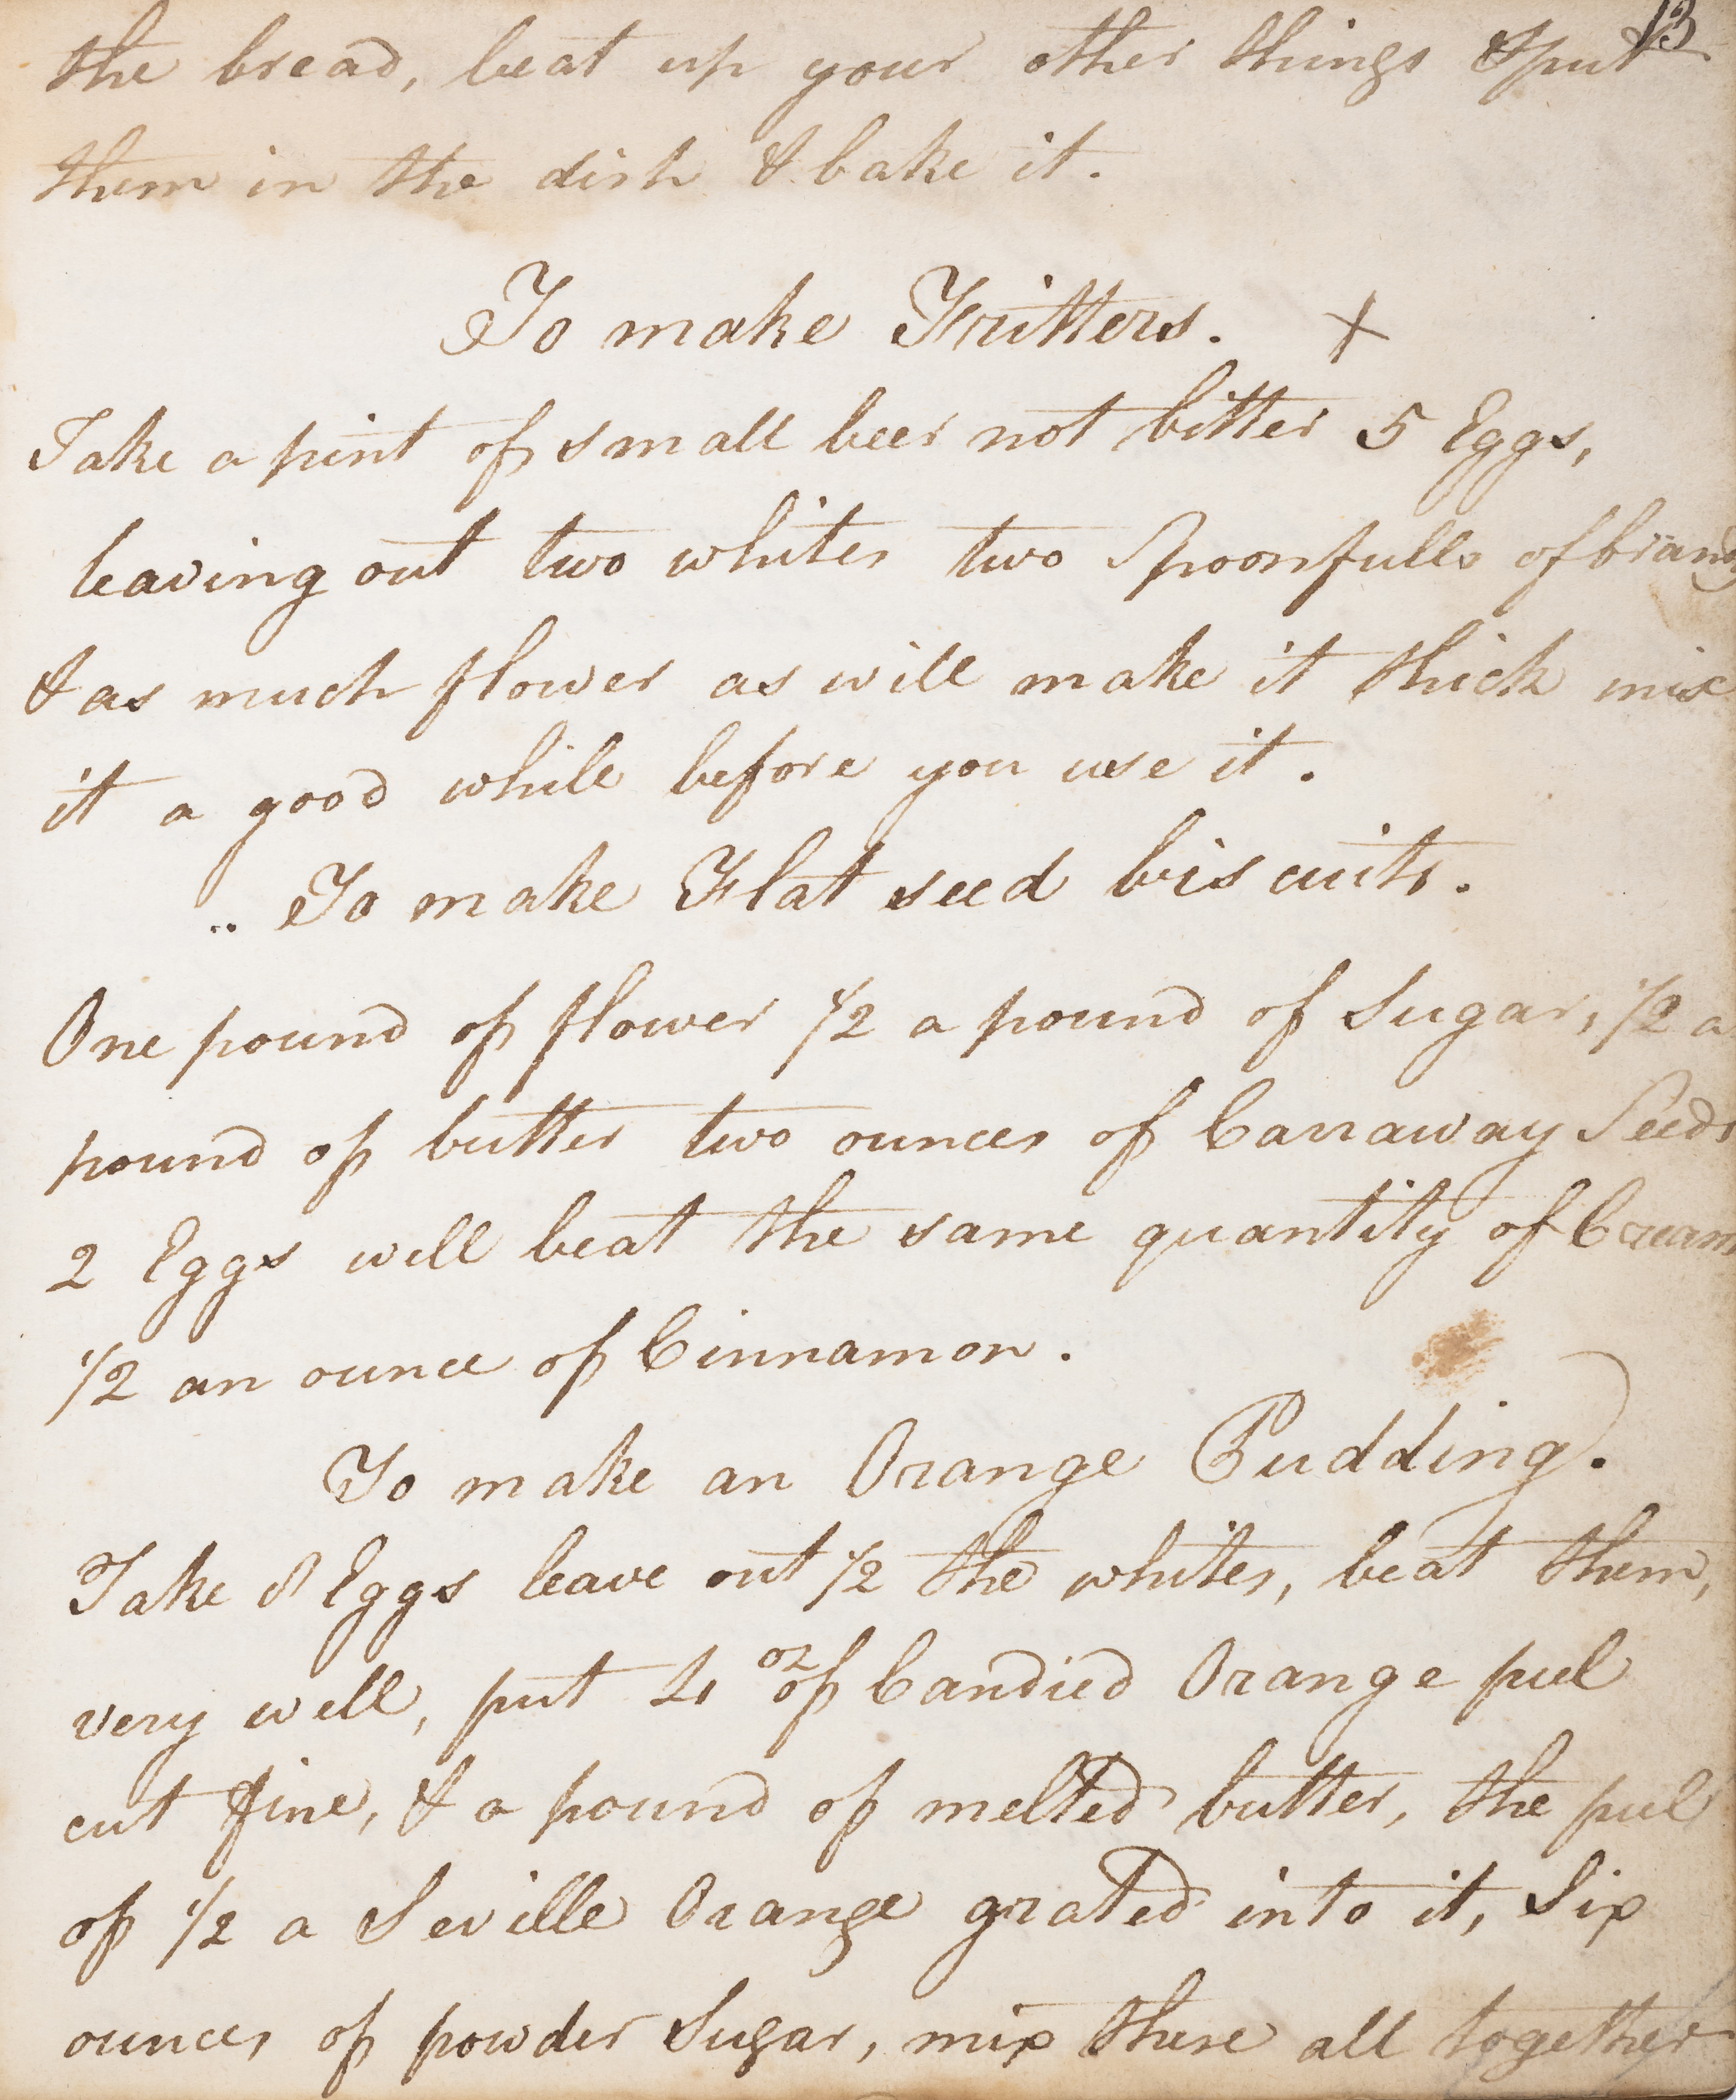 13
the bread, beat up your other things & put
them in the dish & bake it.
To make Fritters. +
Take a pint of small beer not bitter 5 Eggs,
leaving out two whites two Spoonfulls of brandy
& as much flower as will make it thick mix
it a good while before you use it.
.. To make Flat seed biscuits.
One pound of flower 1/2 a pound of Sugar, 1/2 a
pound of butter two ounces of Carraway Seeds
2 Eggs well beat the same quantity of Cream
1/2 an ounce of Cinnamon.
To make an Orange Pudding.
Take 8 Eggs leave out 1/2 the whites, beat them,
very well, put 4 oz of Candied Orange peel
cut fine, & a pound of melted butter, the peel
of 1/2 a Seville Orange grated into it, Six
ounces of powder Sugar, mix these all together